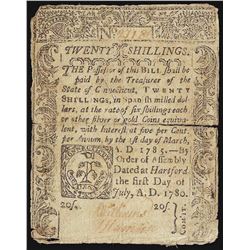 No
TWENTY SHILLINGS.
THE Possessor of this BILL shall be
paid by the Treasurer of the
State of Connecticut, TWENTY
SHILLINGS, in Spanish milled dol-
lars, at the rate of six shillings each
or other silver or gold Coins equiva-
lent, with Interest at five per Cent.
per Annum, by the 1st day of March,
A.D 1785.--By
Order of Assembly
Dated at Hartford
the first Day of
July, A. D. 1780.
20s. 20s.